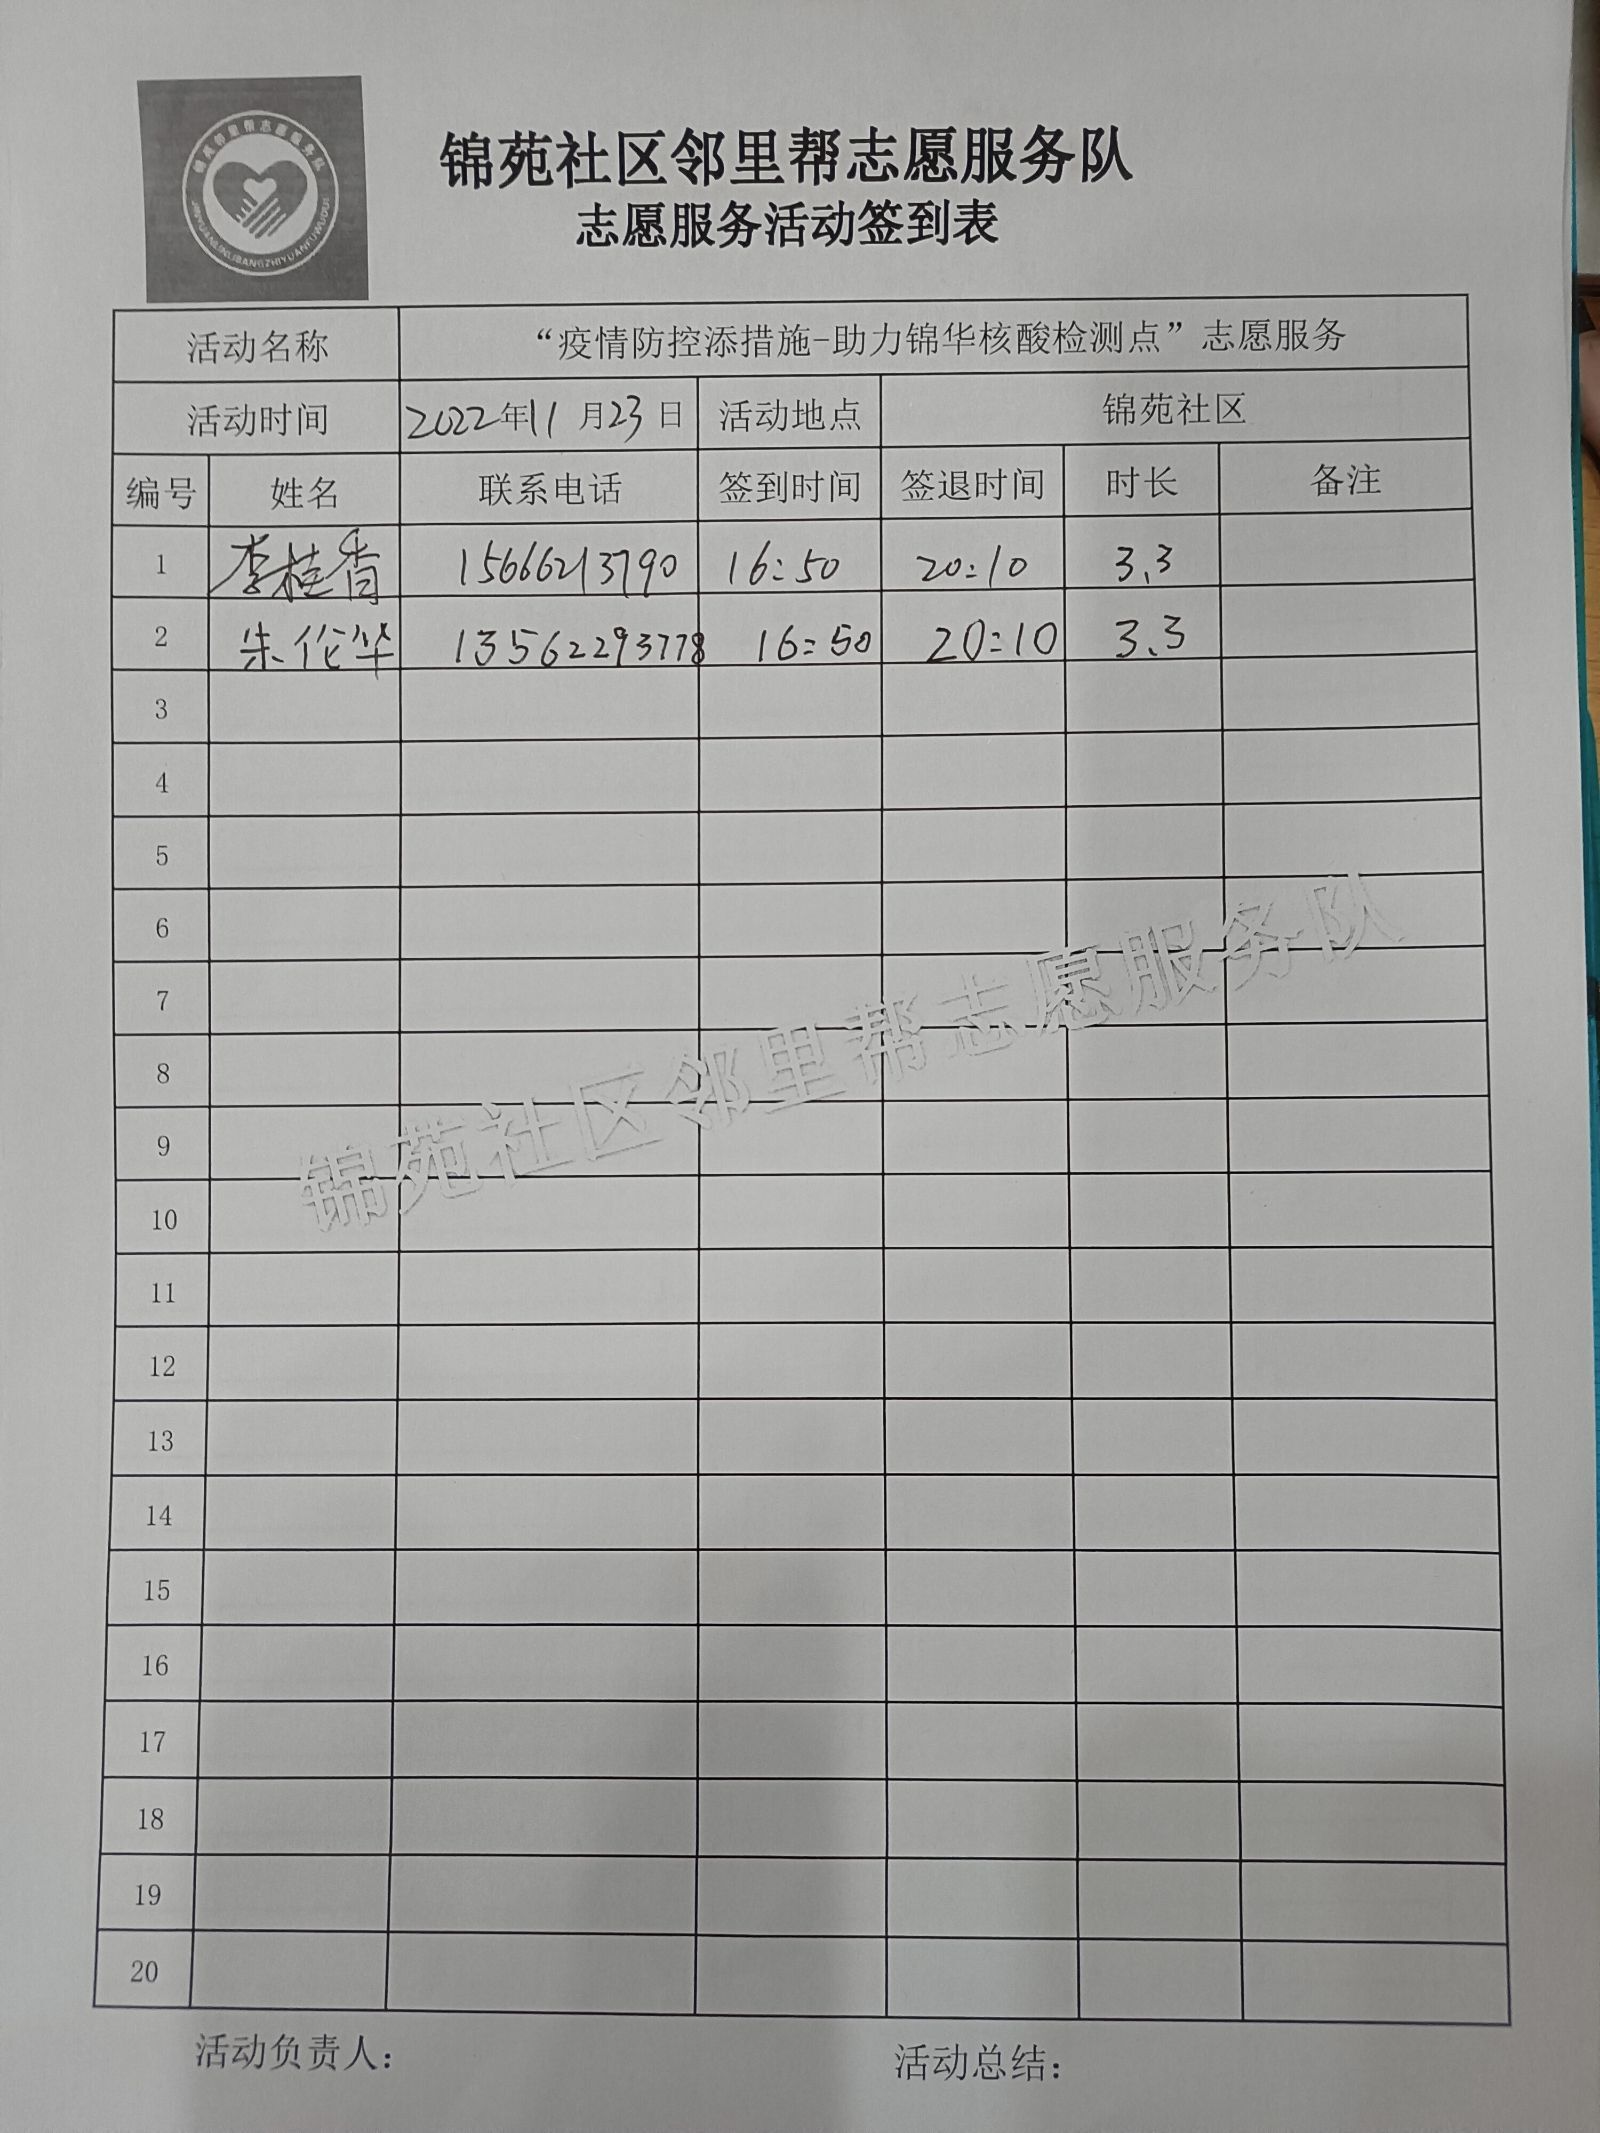 锦苑邻里帮志愿服务队
锦苑社区邻里帮志愿服务队
志愿服务活动签到表
活动名称 “疫情防控添措施-助力锦华核酸检测点”志愿服务
活动时间 2022年11月23日 活动地点 锦苑社区
编号 姓名 联系电话 签到时间 签退时间 时长 备注
1 李桂香 15666213790 16:50 20:10 3.3
2 朱伦华 13562293778 16:50 20:10 3.3
3
4
5
6
7
8
9
10
11
12
13
14
15
16
17
18
19
20
锦苑社区邻里帮志愿服务队
活动负责人: 活动总结: